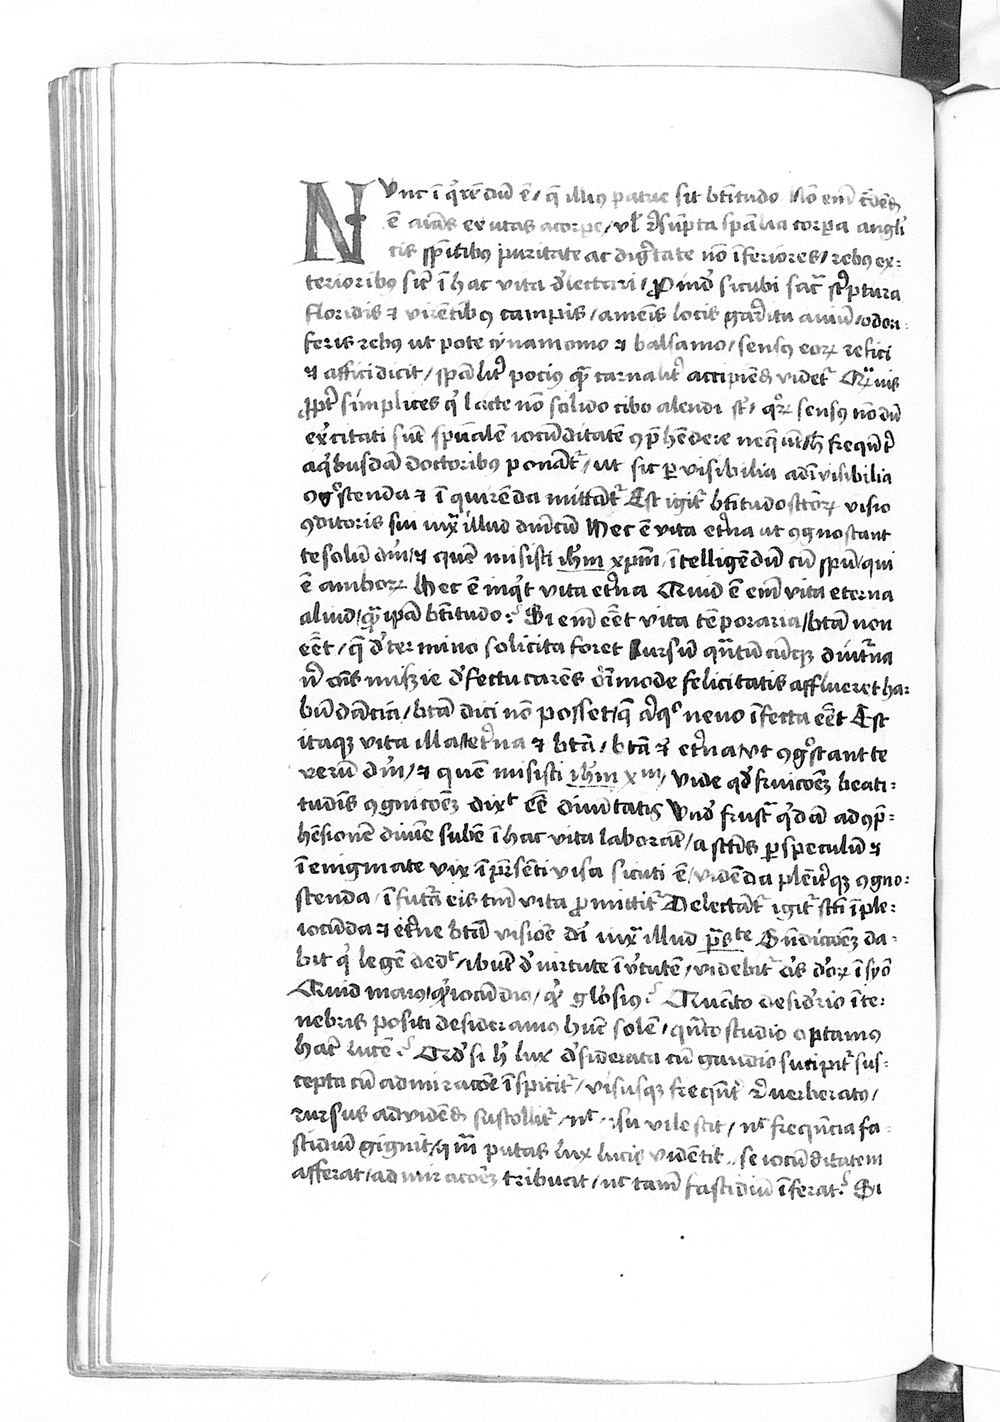 Nunc ī q̄rēdū ē / q̄ illiꝯ patrie sit btītudo Nō enī c̄dēd
ē aīas exutas a corpe / vl' r̄sūpta spūalia corpora angli
cis spītibꝯ puritate ac dig̅tate nō īferiores / rebꝯ ex-
terioribꝯ sic̄ ī hac vita d̄lectari / Proīd̄ sicubi sac̄ sc̄ptura
floridis ⁊ virētibꝯ campis / amenis locis gar̄itu auiū / odori-
feris rebꝯ ut pote cynamomo ⁊ balsamo / sensꝯ eoꝝ refici
⁊ affici dicit / spūalit̄ pociꝯ qͣ carnalit̄ accipiēd videt̄ Qͣuis
ꝓpt̄ simplices q̄ lacte nō solido cibo alendi st̄ / q̄ꝝ sensꝯ nōdū
ex̄citati sūt spūalem iocūditatē ꝯp̄hēdere neq̄unt h̄ freq̄ēt̄
a q̄busdā doctoribꝯ ponāt̄ / ut sic ꝑ visibilia ad īvisibilia
ꝯg̊scenda ⁊ īquirēda mittāt̄ Est igit̄ btītudo sc̄toꝝ visio
ꝯditoris sui iux̄ illud dīcū Hec ē vita et̄na ut ꝯgnoscant
te solū dm̄ / ⁊ quē misisti ih̄m xp̄m / ītelligēdū cū spū / qui
ē amboꝝ Hec ē inq̄t vita et̄na Quid ē enī vita eterna
aliud / qͣ ipā btītudo ? Si enī eēt vita tēporaria / btā non
eēt / q̄ d̄ termino solicita foret Rursū qͣtūcūqꝫ diut̄na
n̄ oīs mis̄ie d̄fectu carēs oīmode felicitatis afflueret ha-
būdācia / btā dici nō posset / q̄ a̅liq̊ nevo īfecta eēt Est
itaqꝫ vita illa et̄na ⁊ btā / btā ⁊ et̄na / Vt ꝯg̊scant te
verū dm̄ / ⁊ quē misisti ih̄m xͫ / Vide qd̄ fruicōēꝫ beati-
tudīs ꝯgnicōēꝫ dixᵗ eē diuītatis Vnd̄ frust̄ q̄dā ad ꝯp̄-
hēsionē diuīe subē ī hac vita laborāt / a sc̄tis ꝑ speculū ⁊
ī enigmate vix ī p̄rsēti visa sicuti ē / vidēda plēit̄qꝫ ꝯgno-
scenda / ī futͣ eis tm̄ vita ꝓmittit̄ Delectāt̄ igit̄ sc̄ti īple-
iocūda ⁊ et̄ne btā visiōe dī iux̄ illud pͣsᵗᵉ Bn̄dicōēꝫ da-
bit q̄ legē dedᵗ / ibūt d̄ virtute ī v̄tutē / videbit̄ dꝰ d̄oꝝ ī syō
Quid maiꝯ / qͥd iocūdiꝯ / qͥd gl'osiꝯ ? Quāto desid̄rio ī te-
nebris positi desideramꝯ hūc solē / qͣto studio optamꝯ
hac̄ lucē ? Qd̄ si h̄ lux d̄siderata cū gaudio suscipit̄ sus-
cepta cū admiracōē īspicit̄ / visusqꝫ freq̄nt̄ r̄verberatꝯ /
rursus ad vidēd sustollit̄ / nᶜ usu vilescit / nᶜ freq̄ncia fa-
stidiū gignit / qͥm putas lux lucis vidētibꝯ se iocūditatem
afferat / admiracōēꝫ tribuat / nᶜ tamē fastidiū īferat ? Si